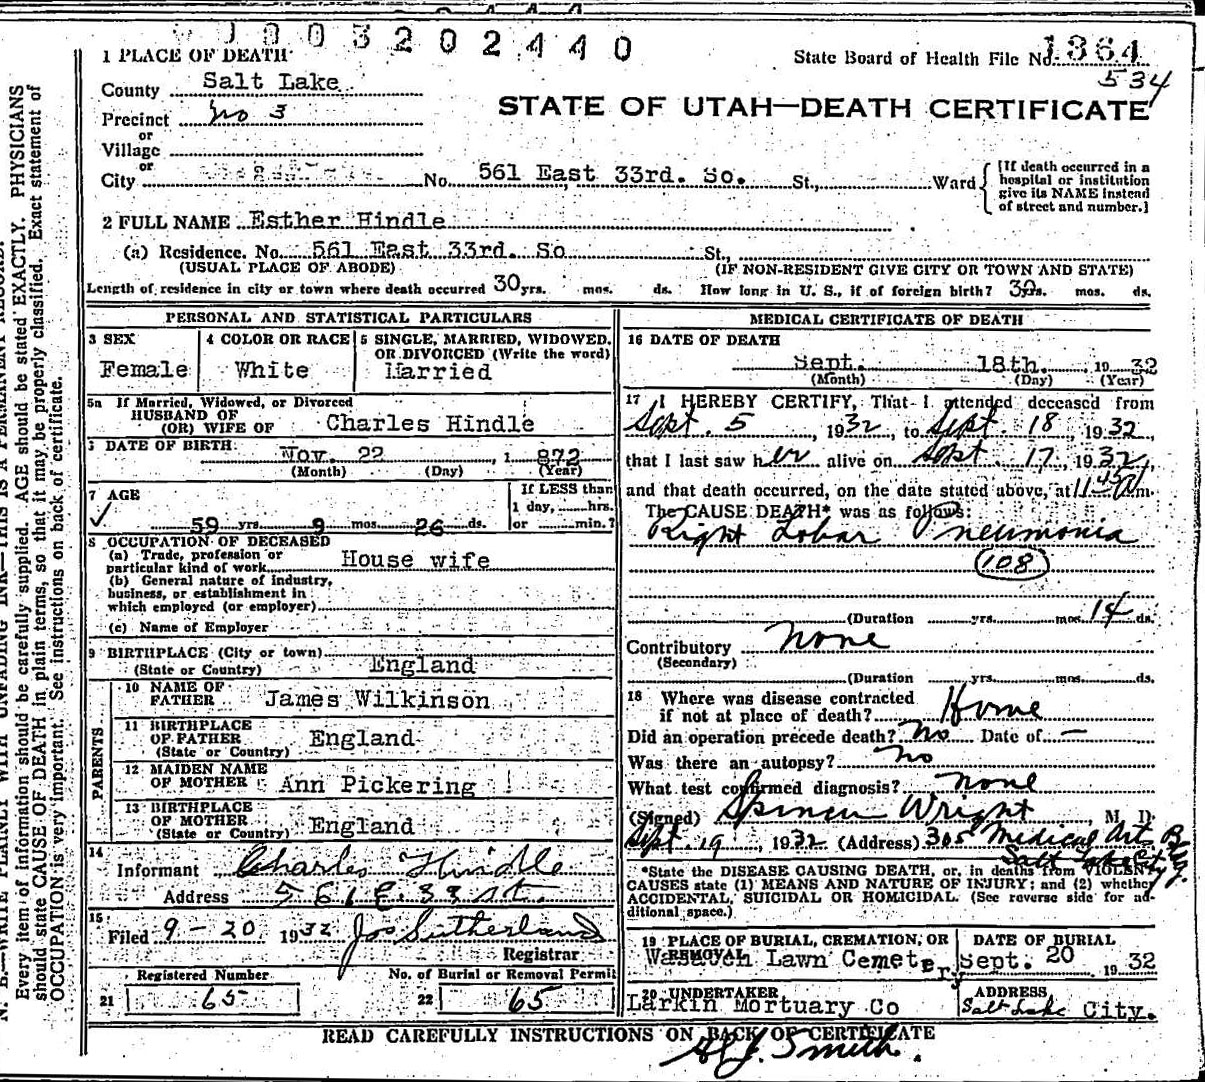 003202440
1 PLACE OF DEATH
State Board of Health File No. 1364
534
County Salt Lake
STATE OF UTAH—DEATH CERTIFICATE
Precinct No 3
or
Village
or
City No. 561 East 33rd. So. St., Ward
[If death occurred in a hospital or institution give its NAME instead of street and number.]
2 FULL NAME Esther Hindle
(a) Residence. No. 561 East 33rd. So St.,
(USUAL PLACE OF ABODE) (IF NON-RESIDENT GIVE CITY OR TOWN AND STATE)
Length of residence in city or town where death occurred 30 yrs. mos. ds. How long in U. S., if of foreign birth? 30 yrs. mos. ds.
PERSONAL AND STATISTICAL PARTICULARS
3 SEX
Female
4 COLOR OR RACE
White
5 SINGLE, MARRIED, WIDOWED, OR DIVORCED (Write the word)
Married
5a If Married, Widowed, or Divorced
HUSBAND OF
(OR) WIFE OF Charles Hindle
6 DATE OF BIRTH Nov. 22, 1 872
(Month) (Day) (Year)
7 AGE
59 yrs. 9 mos. 26 ds.
If LESS than
1 day, hrs.
or min.?
8 OCCUPATION OF DECEASED
(a) Trade, profession or
particular kind of work House wife
(b) General nature of industry,
business, or establishment in
which employed (or employer)
(c) Name of Employer
9 BIRTHPLACE (City or town)
(State or Country) England
PARENTS
10 NAME OF
FATHER James Wilkinson
11 BIRTHPLACE
OF FATHER England
(State or Country)
12 MAIDEN NAME
OF MOTHER Ann Pickering
13 BIRTHPLACE
OF MOTHER
(State or Country) England
14
Informant Charles Hindle
Address 561 E. 33 St.
15
Filed 9-20 1932 Jos Sutherland
Registrar
Registered Number
21 65
No. of Burial or Removal Permit
22 65
MEDICAL CERTIFICATE OF DEATH
16 DATE OF DEATH
Sept. 18th. 19 32
(Month) (Day) (Year)
17 I HEREBY CERTIFY, That I attended deceased from
Sept. 5, 1932, to Sept. 18, 1932,
that I last saw her alive on Sept. 17, 1932,
and that death occurred, on the date stated above, at 11 45 m.
The CAUSE DEATH* was as follows:
Right Lobar Pneumonia
108
(Duration yrs. mos. 14 ds.
Contributory None
(Secondary)
(Duration yrs. mos. ds.
18 Where was disease contracted
if not at place of death? Home
Did an operation precede death? No Date of —
Was there an autopsy? No
What test confirmed diagnosis? None
(Signed) Spencer Wright, M. D.
Sept. 19, 1932 (Address) 305 Medical Arts Bldg.
Salt Lake City
*State the DISEASE CAUSING DEATH, or, in deaths from VIOLENT
CAUSES state (1) MEANS AND NATURE OF INJURY; and (2) whether
ACCIDENTAL, SUICIDAL OR HOMICIDAL. (See reverse side for ad-
ditional space.)
19 PLACE OF BURIAL, CREMATION, OR
REMOVAL
Wasatch Lawn Cemetery
DATE OF BURIAL
Sept. 20 19 32
20 UNDERTAKER
Larkin Mortuary Co
ADDRESS
Salt Lake City.
READ CAREFULLY INSTRUCTIONS ON BACK OF CERTIFICATE
Smith.
N. B.—WRITE PLAINLY WITH UNFADING INK—THIS IS A PERMANENT RECORD.
Every item of information should be carefully supplied. AGE should be stated EXACTLY. PHYSICIANS
should state CAUSE OF DEATH in plain terms, so that it may be properly classified. Exact statement of
OCCUPATION is very important. See instructions on back of certificate.